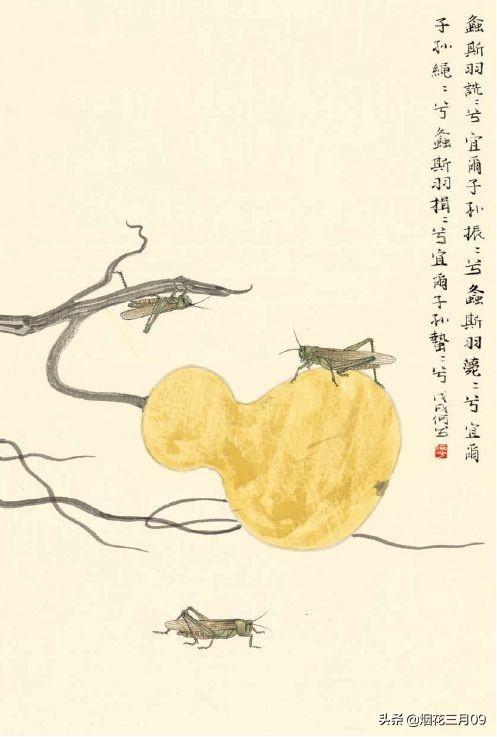 螽斯羽詵〻兮宜爾子孙振〻兮螽斯羽薨〻兮宜爾
子孙繩〻兮螽斯羽揖〻兮宜爾子孙蟄〻兮 戊戌何
头条 @烟花三月09